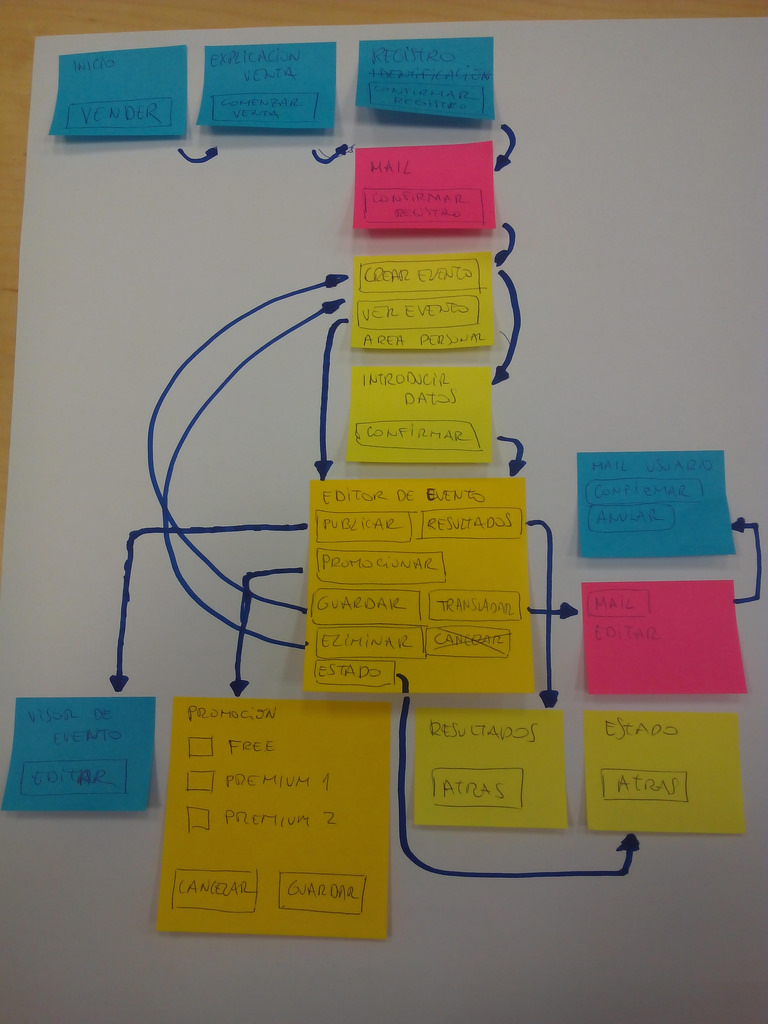 INICIO
VENDER
EXPLICACION
VENTA
COMENZAR
VENTA
REGISTRO
IDENTIFICACIÓN
CONFIRMAR
REGISTRO
MAIL
CONFIRMAR
REGISTRO
CREAR EVENTO
VER EVENTO
AREA PERSONAL
INTRODUCIR
DATOS
CONFIRMAR
EDITOR DE EVENTO
PUBLICAR RESULTADOS
PROMOCIONAR
GUARDAR TRANSLADAR
ELIMINAR CANCELAR
ESTADO
MAIL USUARIO
CONFIRMAR
ANULAR
MAIL
EDITAR
VISOR DE
EVENTO
EDITAR
PROMOCIÓN
FREE
PREMIUM 1
PREMIUM 2
CANCELAR GUARDAR
RESULTADOS
ATRAS
ESTADO
ATRAS